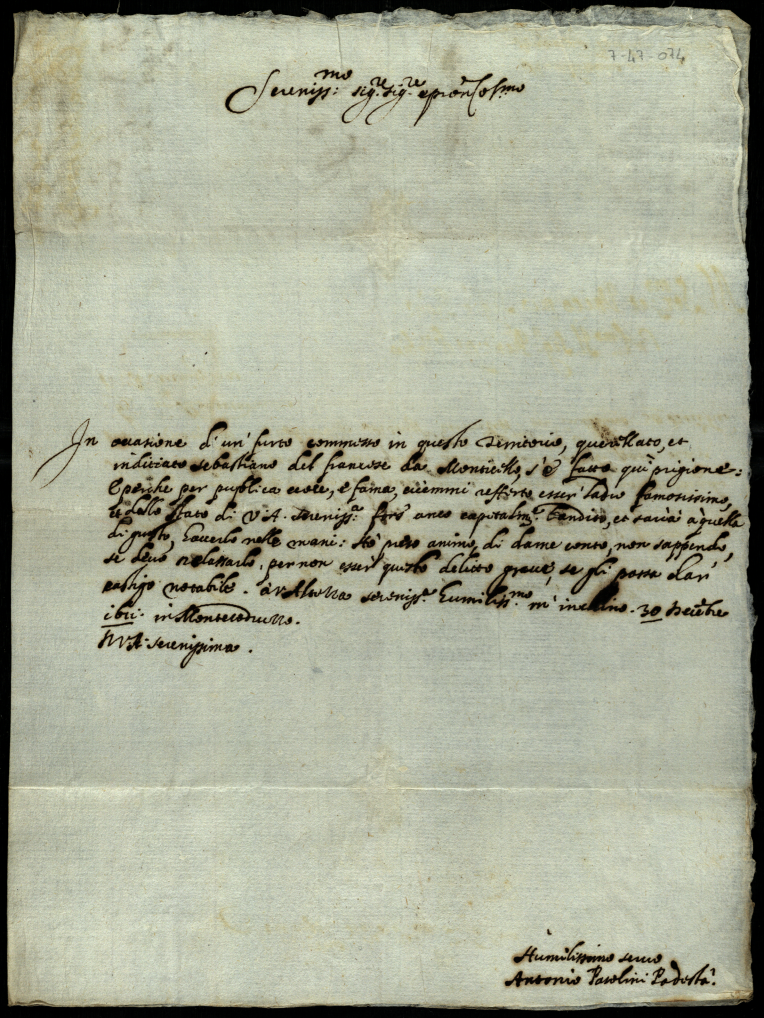 7-47-074
Sereniss:mo sig.re sig.re e pron Col.mo
In occasione di un' furto commesso in questo Territorio, querellato, et
inditiato Sebastiano del francese da Monticello, s'è fatto qui prigione:
E perche per publica voce, e fama, viemmi referto esser ladro famosissimo,
et dello stato di V.A. Sereniss.a fors' anco capitalm.te bandito, et saria à quella
di gusto, haverlo nelle mani: Hò preso animo, di darne conto, non sappendo,
se devo relassarlo, per non esser questo delitto grave, se gli possa dar
castigo notabile. à V. Altezza Sereniss.a humiliss.mo m' inchino. 30 Decēbre
in Montecoduzzo.
D V.A. Serenissima.
Humilissimo servo
Antonio Pasolini Podestà.